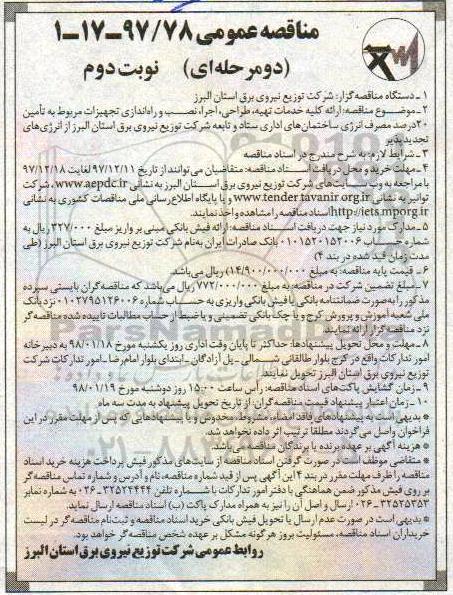 مناقصه عمومی ۹۷/۷۸-۱۷-۱
(دو مرحله‌ای) نوبت دوم
۱- دستگاه مناقصه‌گزار: شرکت توزیع نیروی برق استان البرز
۲- موضوع مناقصه: ارائه کلیه خدمات تهیه، طراحی، اجرا، نصب و راه‌اندازی تجهیزات مربوط به تأمین
۲۰درصد مصرف انرژی ساختمان‌های اداری ستاد و تابعه شرکت توزیع نیروی برق استان البرز از انرژی‌های
تجدیدپذیر
۳- شرایط لازم: به شرح مندرج در اسناد مناقصه
۴- مهلت خرید و محل دریافت اسناد مناقصه: متقاضیان می‌توانند از تاریخ ۹۷/۱۲/۱۱ لغایت ۹۷/۱۲/۱۸
با مراجعه به وب سایت‌های شرکت توزیع نیروی برق استان البرز به نشانی www.aepdc.ir، شرکت
توانیر به نشانی www.tender.tavanir.org.ir و یا پایگاه اطلاع رسانی ملی مناقصات کشوری به نشانی
http://iets.mporg.ir اسناد مناقصه را مشاهده و اخذ نمایند.
۵- مدارک مورد نیاز جهت دریافت اسناد مناقصه: ارائه فیش بانکی مبنی بر واریز مبلغ ۳۲۷/۰۰۰ ریال به
شماره حساب ۰۱۰۱۵۲۰۱۵۲۰۰۶ بانک صادرات ایران به‌نام شرکت توزیع نیروی برق استان البرز (طی
مدت زمان قید شده در بند ۴)
۶- قیمت پایه مناقصه: به مبلغ (۱۴/۹۰۰/۰۰۰/۰۰۰) ریال می‌باشد.
۷- مبلغ تضمین شرکت در مناقصه: به مبلغ ۷۷۲/۰۰۰/۰۰۰ ریال می‌باشد که مناقصه‌گران بایستی سپرده
مذکور را به‌صورت ضمانتنامه بانکی یا فیش بانکی واریزی به حساب شماره ۰۱۰۲۷۹۵۱۲۶۰۰۶ نزد بانک
ملی شعبه آموزش و پرورش کرج و یا چک بانکی تضمینی و یا ضبط از حساب مطالبات تاییده شده مناقصه‌گر
نزد مناقصه‌گزار ارائه نمایند.
۸- مهلت و محل تحویل پیشنهادها: حداکثر تا پایان وقت اداری روز یکشنبه مورخ ۹۸/۰۱/۱۸ به دبیرخانه
امور تدارکات واقع در کرج بلوار طالقانی شمالی- پل آزادگان- ابتدای بلوار امام رضا- امور تدارکات شرکت
توزیع نیروی برق استان البرز تحویل نمایند.
۹- زمان گشایش پاکت‌های اسناد مناقصه: رأس ساعت ۱۵:۰۰ روز دوشنبه مورخ ۹۸/۰۱/۱۹
۱۰- زمان اعتبار پیشنهاد قیمت مناقصه‌گران: از تاریخ تحویل پیشنهاد به مدت سه ماه
* بدیهی است به پیشنهادهای فاقد امضاء، مشروط، مخدوش و یا پیشنهادهایی که پس از مهلت مقرر در این
فراخوان واصل می‌گردند مطلقا ترتیب اثر داده نخواهد شد.
* هزینه آگهی بر عهده برنده یا برندگان مناقصه می‌باشد.
* متقاضی موظف است در صورت گرفتن اسناد مناقصه از سایت‌های مذکور فیش پرداخت هزینه خرید اسناد
مناقصه را ظرف مهلت مقرر در بند ۴ این آگهی پس از قید شماره مناقصه، نام و آدرس و شماره تماس مناقصه‌گر
بر روی فیش مذکور ضمن هماهنگی با دفتر امور تدارکات با شماره تلفن ۳۲۵۲۲۴۴۴-۰۲۶ به شماره نمابر
۳۲۵۲۵۳۵۳-۰۲۶ ارسال و اصل آن را نیز به همراه مدارک پاکت (ب) اسناد مناقصه ارسال نماید.
* بدیهی است در صورت عدم ارسال یا تحویل فیش بانکی خرید اسناد مناقصه و ثبت‌نام مناقصه‌گر در لیست
خریداران اسناد مناقصه، مسئولیت بروز هرگونه مشکل بر عهده شخص مناقصه‌گر خواهد بود.
روابط عمومی شرکت توزیع نیروی برق استان البرز